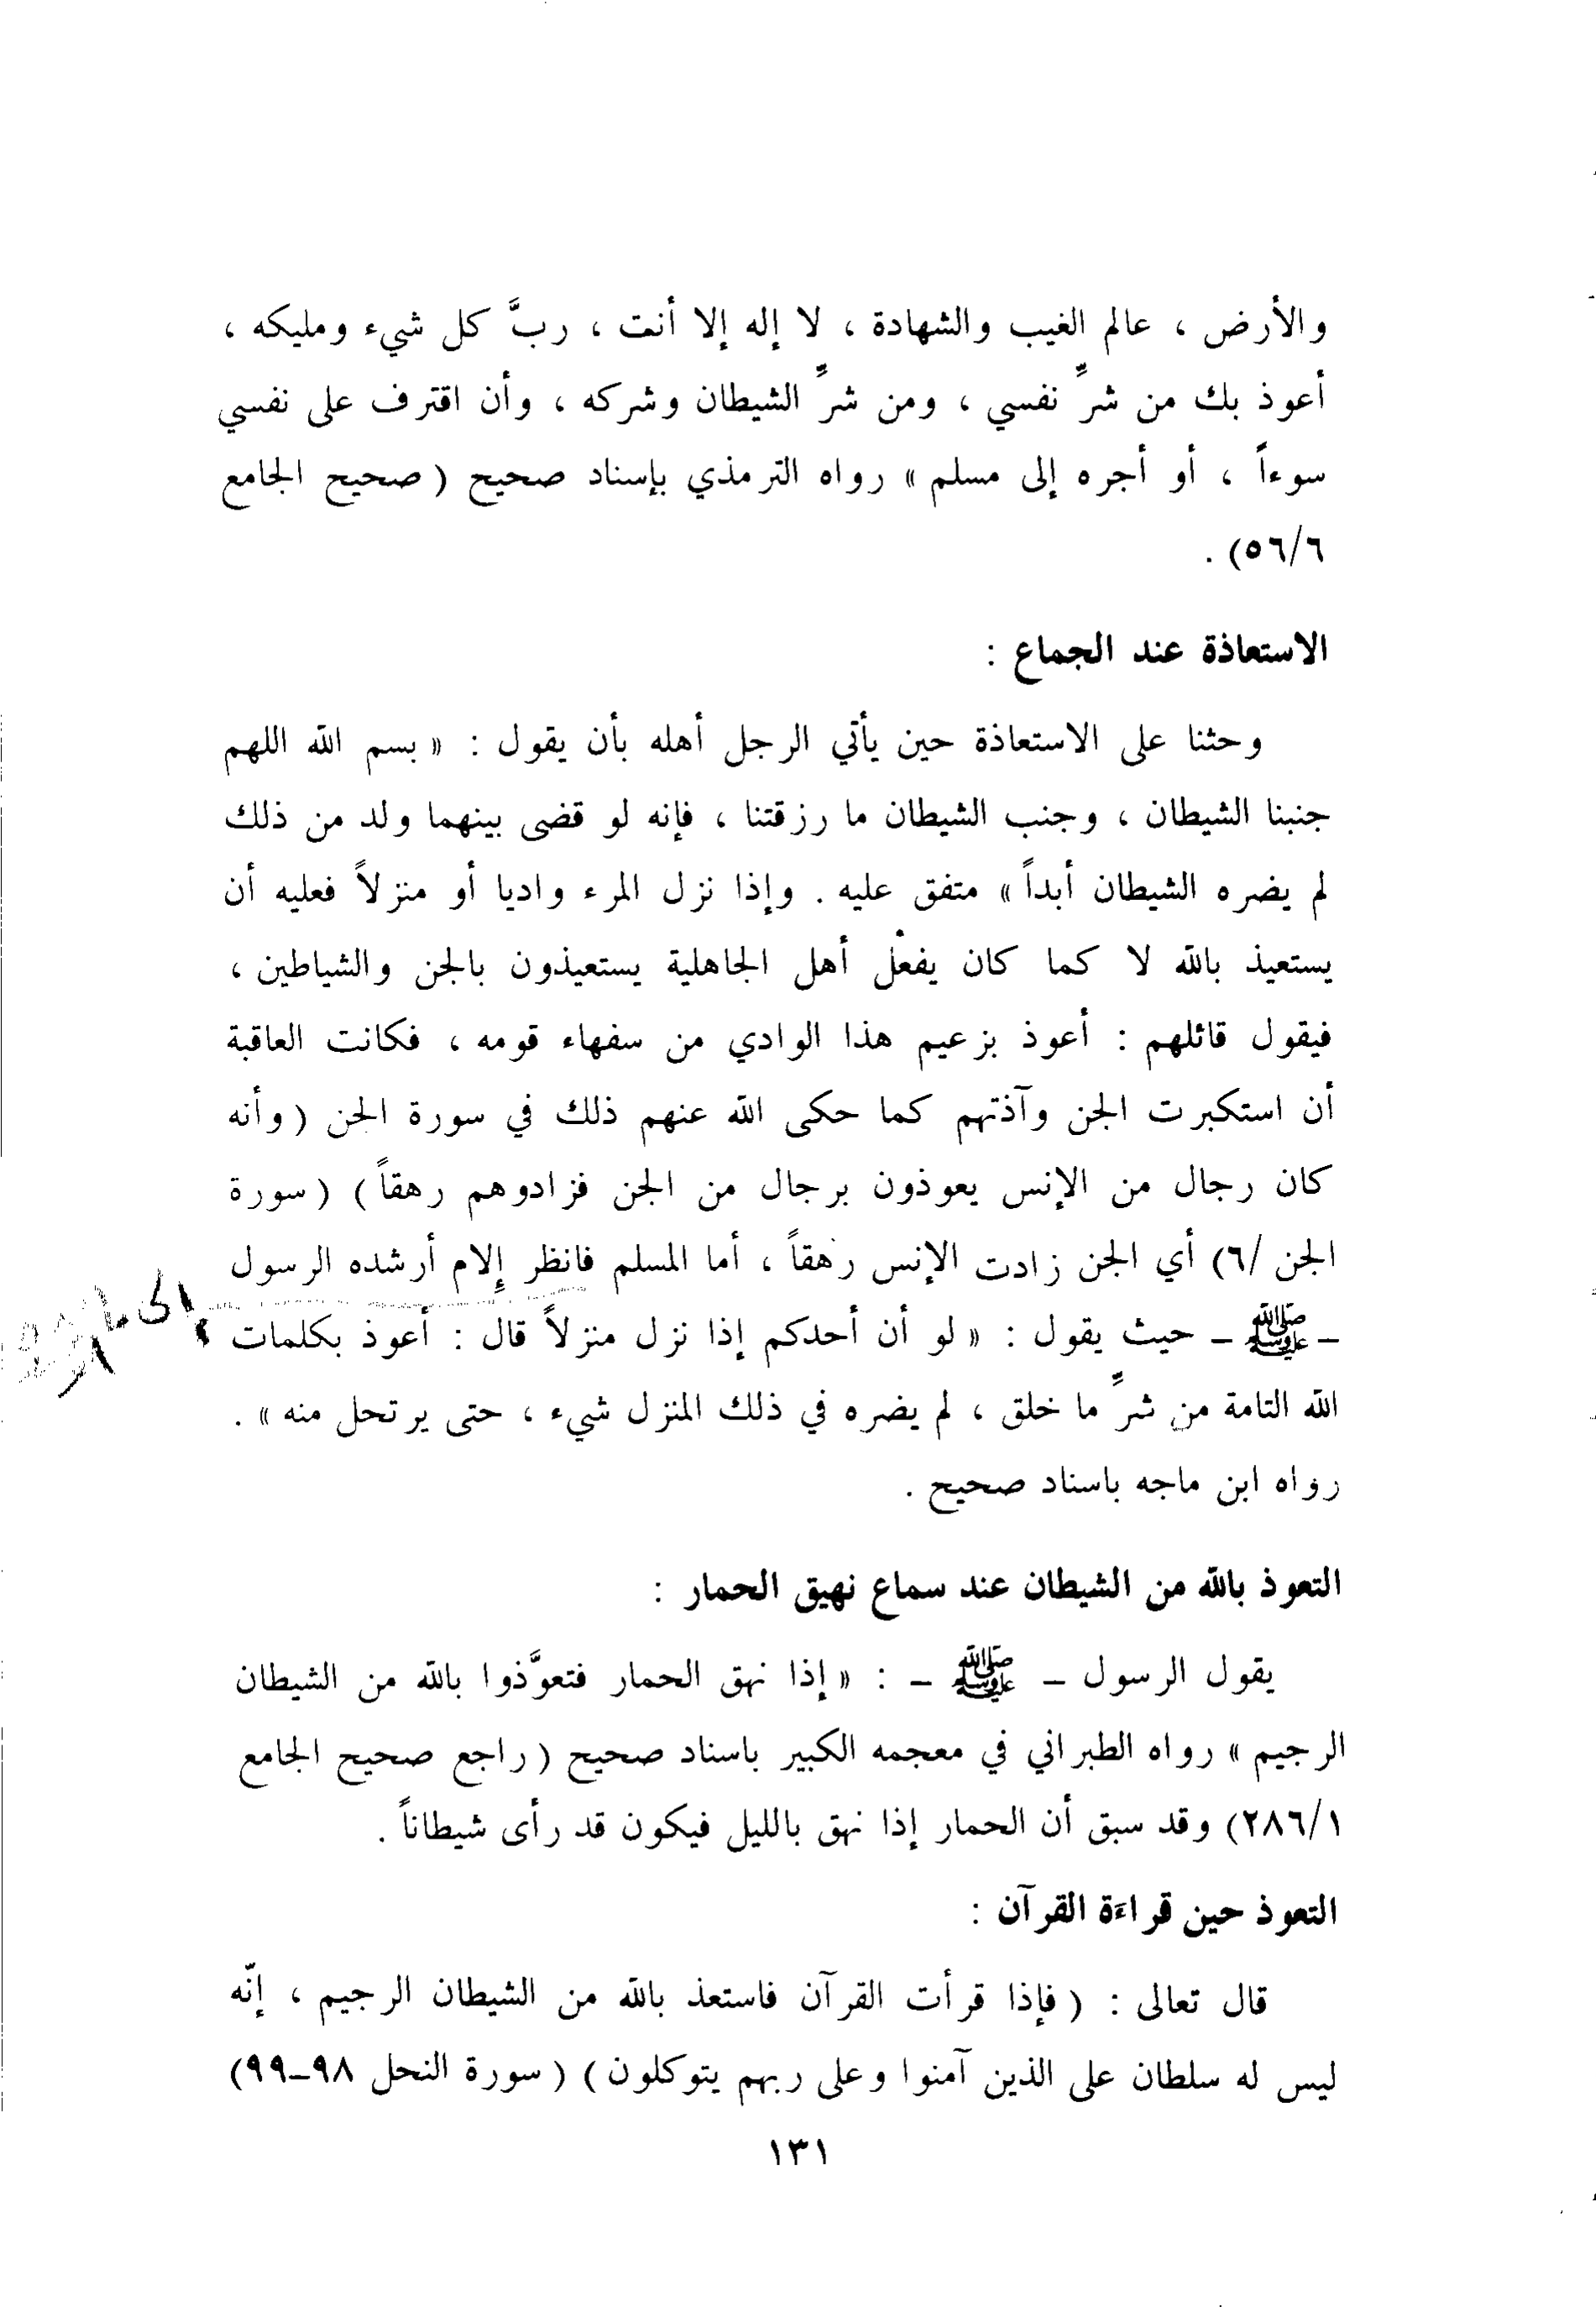 والأرض ، عالم الغيب والشهادة ، لا إله إلا أنت ، ربَّ كل شيء ومليكه ،
أعوذ بك من شرِّ نفسي ، ومن شرِّ الشيطان وشركه ، وأن اقترف على نفسي
سوءاً ، أو أجره إلى مسلم » رواه الترمذي بإسناد صحيح ( صحيح الجامع
٥٦/٦) .
الاستعاذة عند الجماع :
وحثنا على الاستعاذة حين يأتي الرجل أهله بأن يقول : « بسم الله اللهم
جنبنا الشيطان ، وجنب الشيطان ما رزقتنا ، فإنه لو قضى بينهما ولد من ذلك
لم يضره الشيطان أبداً » متفق عليه . وإذا نزل المرء واديا أو منزلاً فعليه أن
يستعيذ بالله لا كما كان يفعل أهل الجاهلية يستعيذون بالجن والشياطين ،
فيقول قائلهم : أعوذ بزعيم هذا الوادي من سفهاء قومه ، فكانت العاقبة
أن استكبرت الجن وآذتهم كما حكى الله عنهم ذلك في سورة الجن ( وأنه
كان رجال من الإنس يعوذون برجال من الجن فزادوهم رهقاً ) ( سورة
الجن /٦) أي الجن زادت الإنس رهقاً ، أما المسلم فانظر إلام أرشده الرسول
– ﷺ – حيث يقول : « لو أن أحدكم إذا نزل منزلاً قال : أعوذ بكلمات
الله التامة من شرِّ ما خلق ، لم يضره في ذلك المنزل شيء ، حتى يرتحل منه » .
رواه ابن ماجه باسناد صحيح .
التعوذ بالله من الشيطان عند سماع نهيق الحمار :
يقول الرسول – ﷺ – : « إذا نهق الحمار فتعوَّذوا بالله من الشيطان
الرجيم » رواه الطبراني في معجمه الكبير باسناد صحيح ( راجع صحيح الجامع
٢٨٦/١) وقد سبق أن الحمار إذا نهق بالليل فيكون قد رأى شيطاناً .
التعوذ حين قراءة القرآن :
قال تعالى : ( فإذا قرأت القرآن فاستعذ بالله من الشيطان الرجيم ، إنّه
ليس له سلطان على الذين آمنوا وعلى ربهم يتوكلون ) ( سورة النحل ٩٨–٩٩)
١٣١